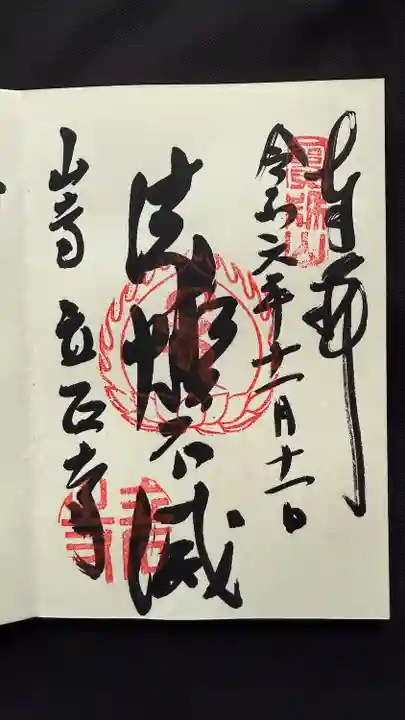 奉拝
寶珠山
令和元年十一月十一日
法燈不滅
山寺 立石寺